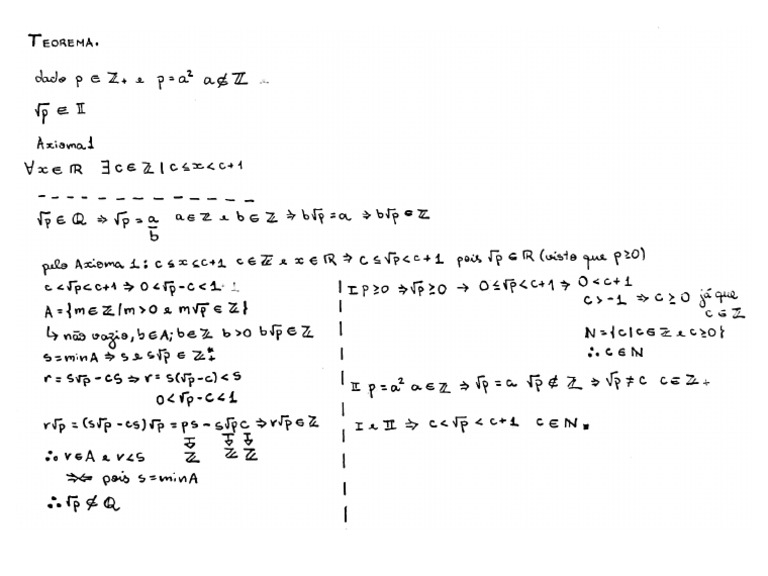 TEOREMA.
dado p ∈ ℤ₊ e p = a² a ∉ ℤ
√p ∈ 𝕀
Axioma 1
∀x ∈ ℝ ∃ c ∈ ℤ | c ≤ x < c+1
√p ∈ ℚ ⇒ √p = a/b a ∈ ℤ e b ∈ ℤ ⇒ b√p = a ⇒ b√p ∈ ℤ
pelo Axioma 1: c ≤ x ≤ c+1 c ∈ ℤ e x ∈ ℝ ⇒ c ≤ √p < c+1 pois √p ∈ ℝ (visto que p ≥ 0)
c < √p < c+1 ⇒ 0 < √p - c < 1
A = {m ∈ ℤ / m > 0 e m√p ∈ ℤ}
↳ não vazio, b ∈ A; b ∈ ℤ b > 0 b√p ∈ ℤ
s = min A ⇒ s e s√p ∈ ℤ₊*
r = s√p - cs ⇒ r = s(√p - c) < s
0 < √p - c < 1
r√p = (s√p - cs)√p = ps - s√pc ⇒ r√p ∈ ℤ
⇓ ⇓ ⇓
∴ r ∈ A e r < s ℤ ℤ ℤ
⇒⇐ pois s = min A
∴ √p ∉ ℚ
I p ≥ 0 ⇒ √p ≥ 0 → 0 ≤ √p < c+1 ⇒ 0 < c+1
c > -1 ⇒ c ≥ 0 já que
c ∈ ℤ
N = {c | c ∈ ℤ e c ≥ 0}
∴ c ∈ N
II p = a² a ∉ ℤ ⇒ √p = a √p ∉ ℤ ⇒ √p ≠ c c ∈ ℤ₊
I e II ⇒ c < √p < c+1 c ∈ N ∎